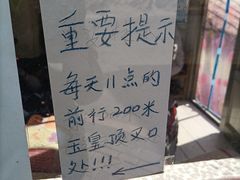 重要提示
每天11点的
前行200米
玉皇顶叉口
处!!!